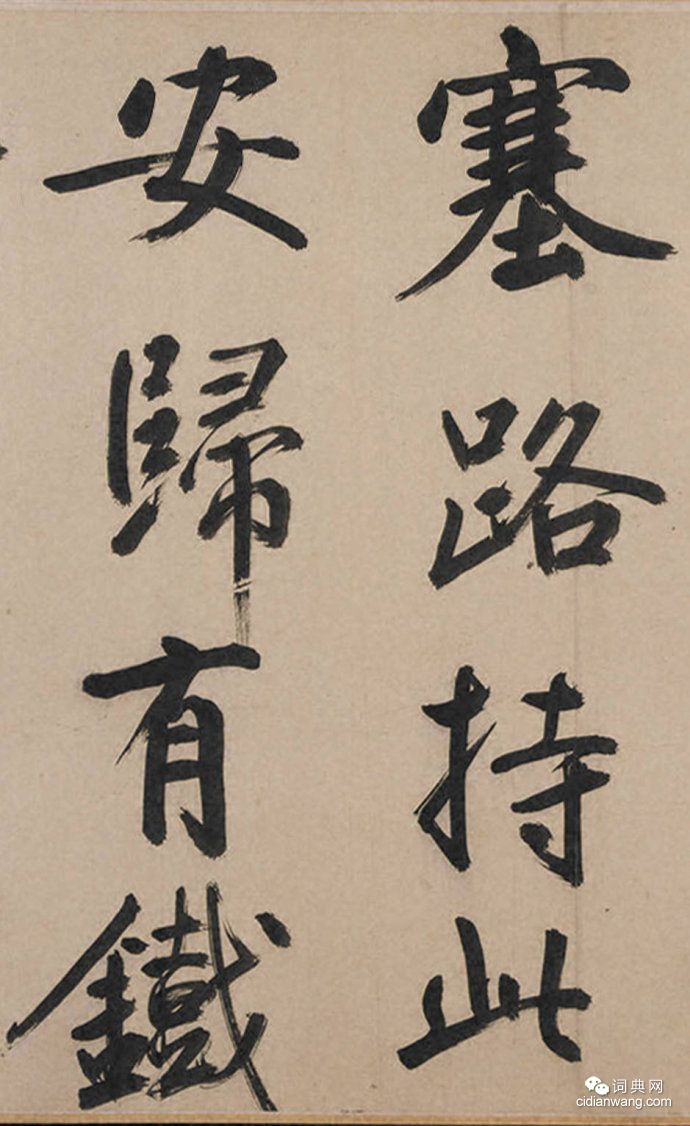 塞路持此
安歸有鐵
词典网
cidianwang.com